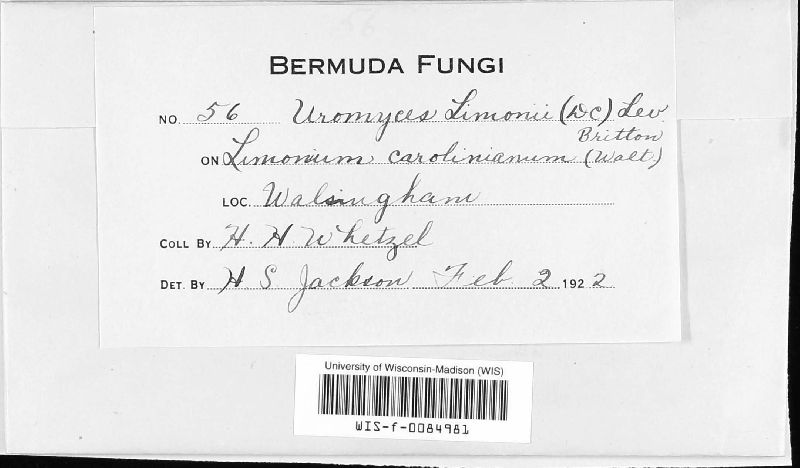 BERMUDA FUNGI
NO. 56 Uromyces Limonii (DC) Lev
Britton
ON Limonium carolinianum (Walt.)
LOC. Walsingham
COLL BY H. H Whetzel
DET. BY H. S Jackson Feb 2 1922
University of Wisconsin-Madison (WIS)
WIS-f-0084981